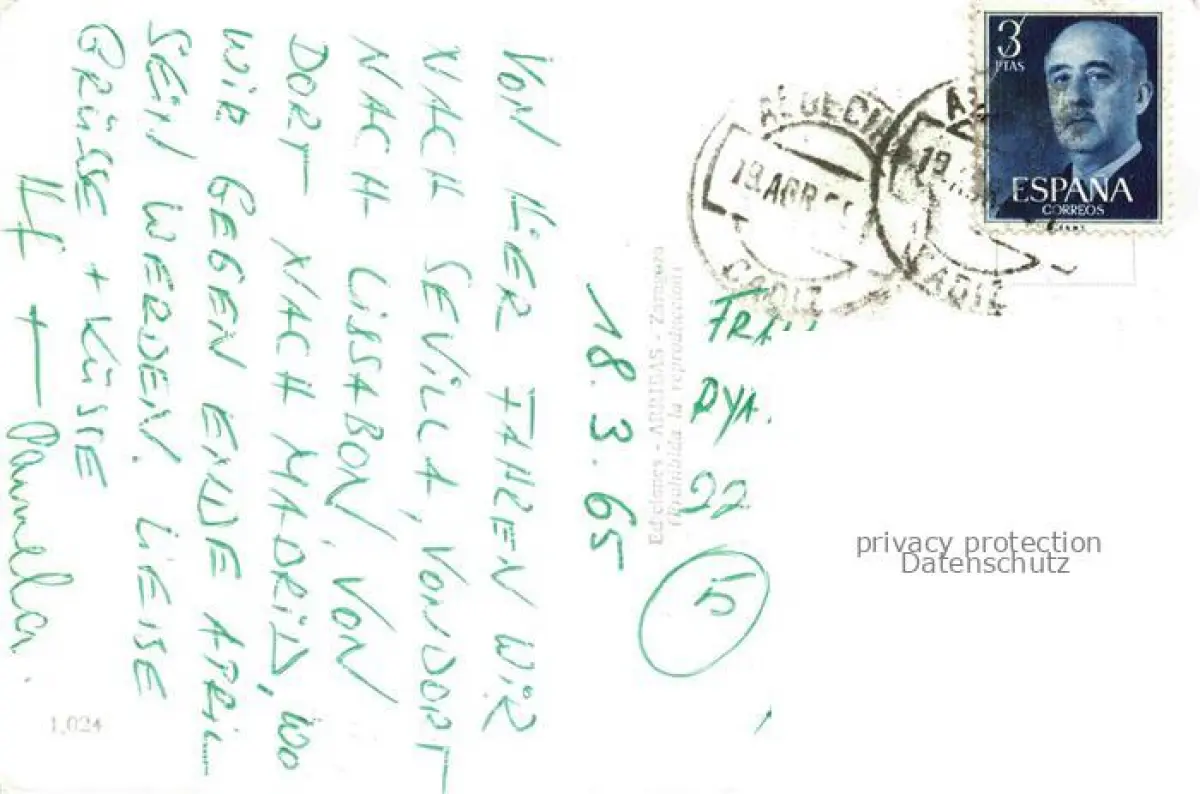 VON HIER FAHREN WIR
NACH SEVILLA, VON DORT
NACH LISSABON, VON
DORT NACH MADRID, WO
WIR GEGEN ENDE APRIL
SEIN WERDEN. LIEBE
GRÜSSE + KÜSSE
+ Pamela.
18.3.65
FRAU
22
5
3
PTAS
ESPAÑA
CORREOS
ALGECIR
19 ABR
CADIZ
19
CADIZ
Ediciones - ARRIBAS - Zaragoza
(Prohibida la reproducción)
1,024
privacy protection
Datenschutz